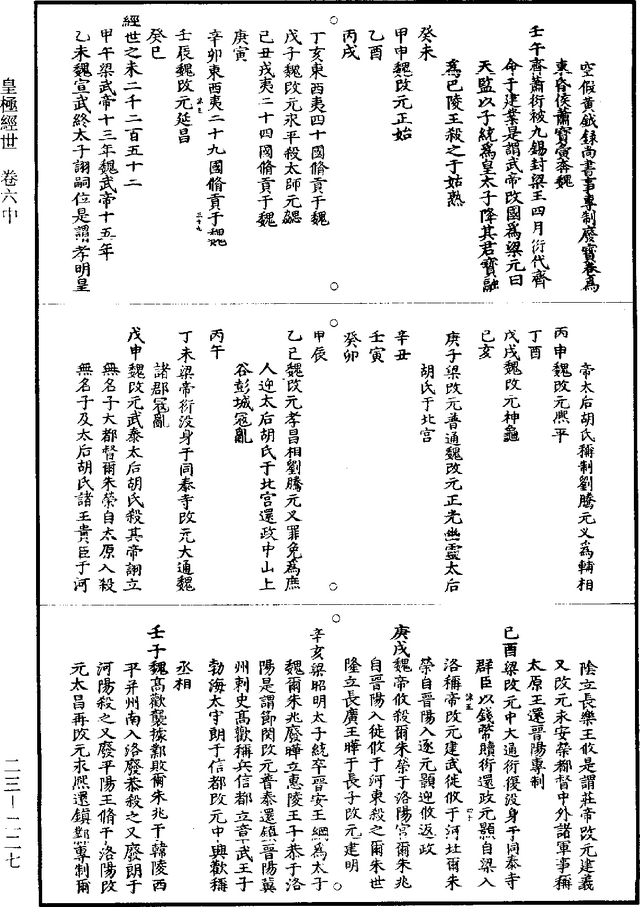 空假黃鉞錄尚書事專制廢寶卷爲
東昏侯蕭寶寅奔魏
壬午齊蕭衍被九錫封梁王四月衍代齊
命于建業是謂武帝改國爲梁元曰
天監以子統爲皇太子降其君寶融
爲巴陵王殺之于姑熟
癸未
甲申魏改元正始
乙酉
丙戌
丁亥東西夷四十國脩貢于魏
戊子魏改元永平殺太師元勰
己丑戎夷二十四國脩貢于魏
庚寅
辛卯東西夷二十九國脩貢于魏
壬辰魏改元延昌
癸巳
經世之未二千二百五十二
甲午梁武帝十三年魏武帝十五年
乙未魏宣武終太子詡嗣位是謂孝明皇
帝太后胡氏稱制劉騰元义爲輔相
丙申魏改元熙平
丁酉
戊戌魏改元神龜
己亥
庚子梁改元普通魏改元正光幽靈太后
胡氏于北宮
辛丑
壬寅
癸卯
甲辰
乙巳魏改元孝昌相劉騰元义罪免爲庶
人迎太后胡氏于北宮還政中山上
谷彭城冦亂
丙午
丁未梁帝衍没身于同泰寺改元大通魏
諸郡冦亂
戊申魏改元武泰太后胡氏殺其帝詡立
無名子大都督爾朱榮自太原入殺
無名子及太后胡氏諸王貴臣于河
陰立長樂王攸是謂莊帝改元建義
又改元永安榮都督中外諸軍事稱
太原王還晉陽專制
己酉梁改元中大通衍復没身于同泰寺
群臣以錢幣贖衍還政元顥自梁入
洛稱帝改元建武徙攸于河北爾朱
榮自晉陽入逐元顥迎攸返政
庚戌魏帝攸殺爾朱榮于洛陽宮爾朱兆
自晉陽入徙攸于河東殺之爾朱世
隆立長廣王曄于長子改元建明
辛亥梁昭明太子統卒晉安王綱爲太子
魏爾朱兆廢曄立惠陵王子恭于洛
陽是謂節閔改元普泰還鎮晉陽冀
州刺史髙歡稱兵信都立章武王子
勃海太守朗于信都改元中興歡稱
丞相
壬子魏髙歡襲據鄴敗爾朱兆于韓陵西
平并州南入洛廢恭殺之又廢朗于
河陽殺之又廢平陽王脩于洛陽改
元太昌再改元永熙還鎮鄴專制爾
皇極經世　卷六中
二三—二二七